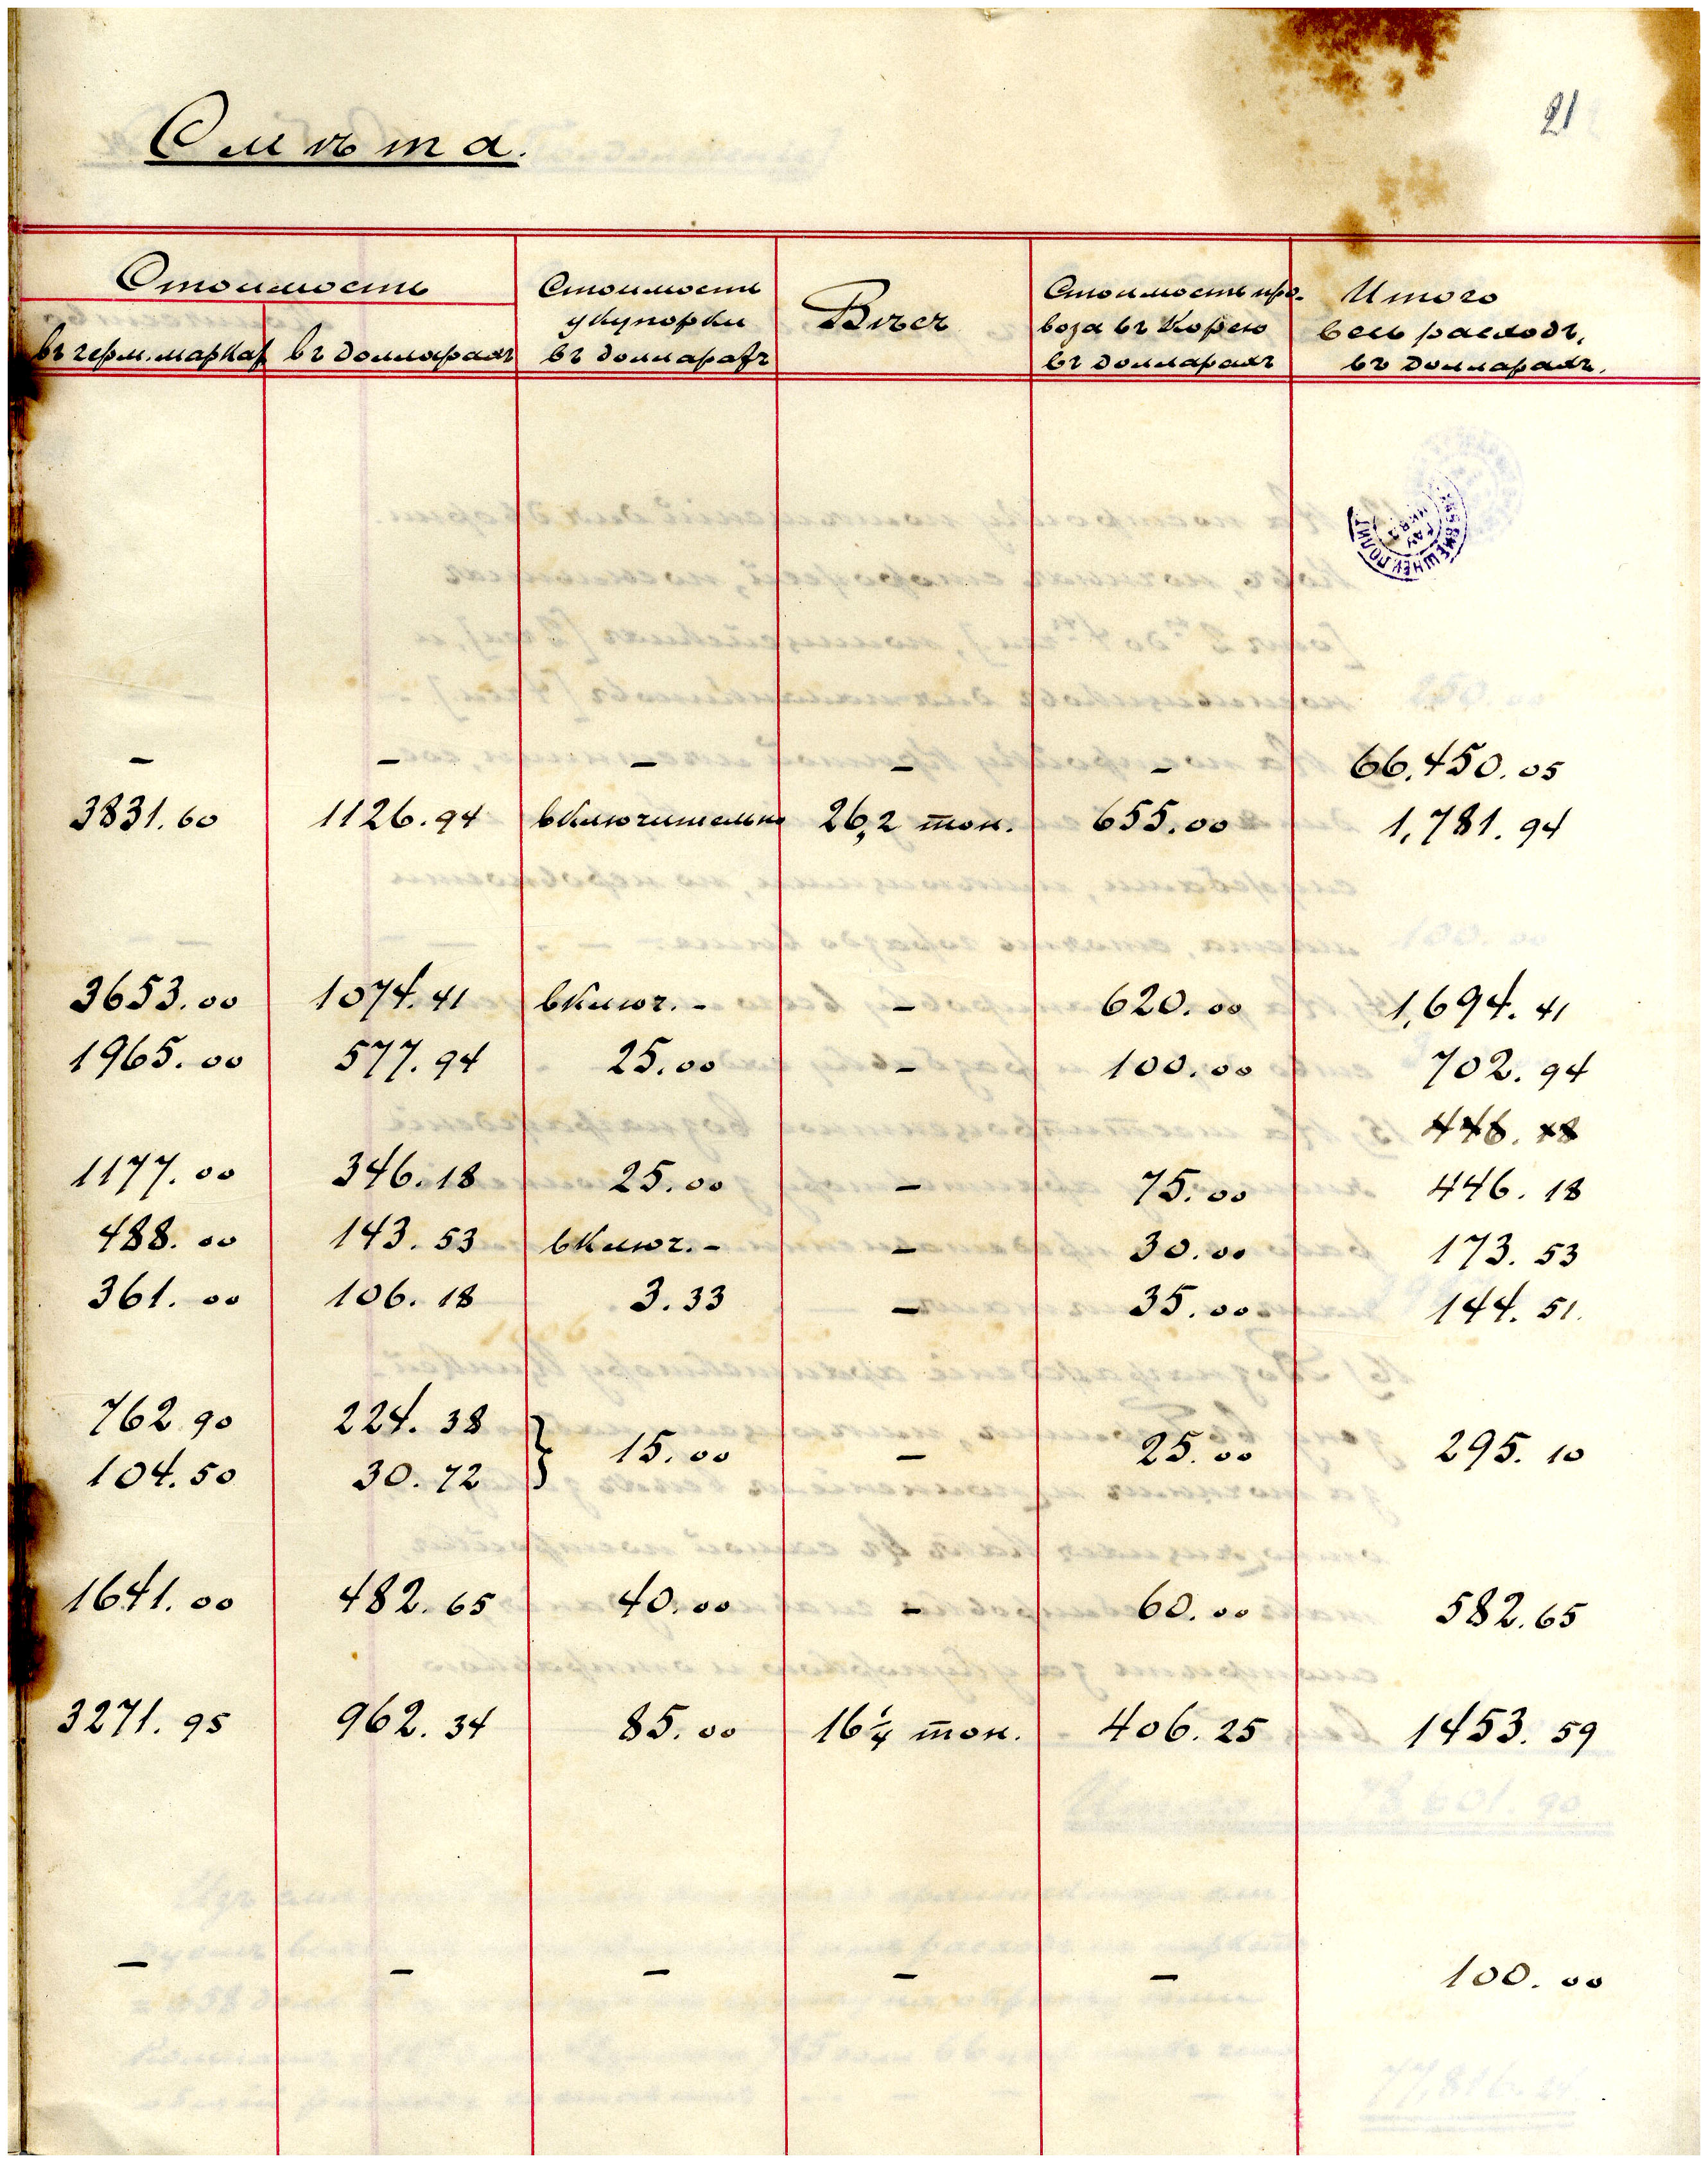 21
Смѣта.
Стоимость
въ герм. маркахъ
въ долларахъ
Стоимость
укупорки
въ долларахъ
Вѣсъ
Стоимость про-
воза въ Корею
въ долларахъ
Итого
весь расходъ
въ долларахъ.
— — — — — 66.450.05
3831.60 1126.94 включительно 26,2 тон. 655.00 1,781.94
3653.00 1074.41 включ. - — 620.00 1,694.41
1965.00 577.94 25.00 — 100.00 702.94
1177.00 346.18 25.00 — 75.00 446.18
488.00 143.53 включ. - — 30.00 173.53
361.00 106.18 3.33 — 35.00 144.51.
762.90 224.38
15.00 — 25.00 295.10
104.50 30.72
1641.00 482.65 40.00 — 60.00 582.65
3271.95 962.34 85.00 16¼ тон. 406.25 1453.59
— — — — — 100.00